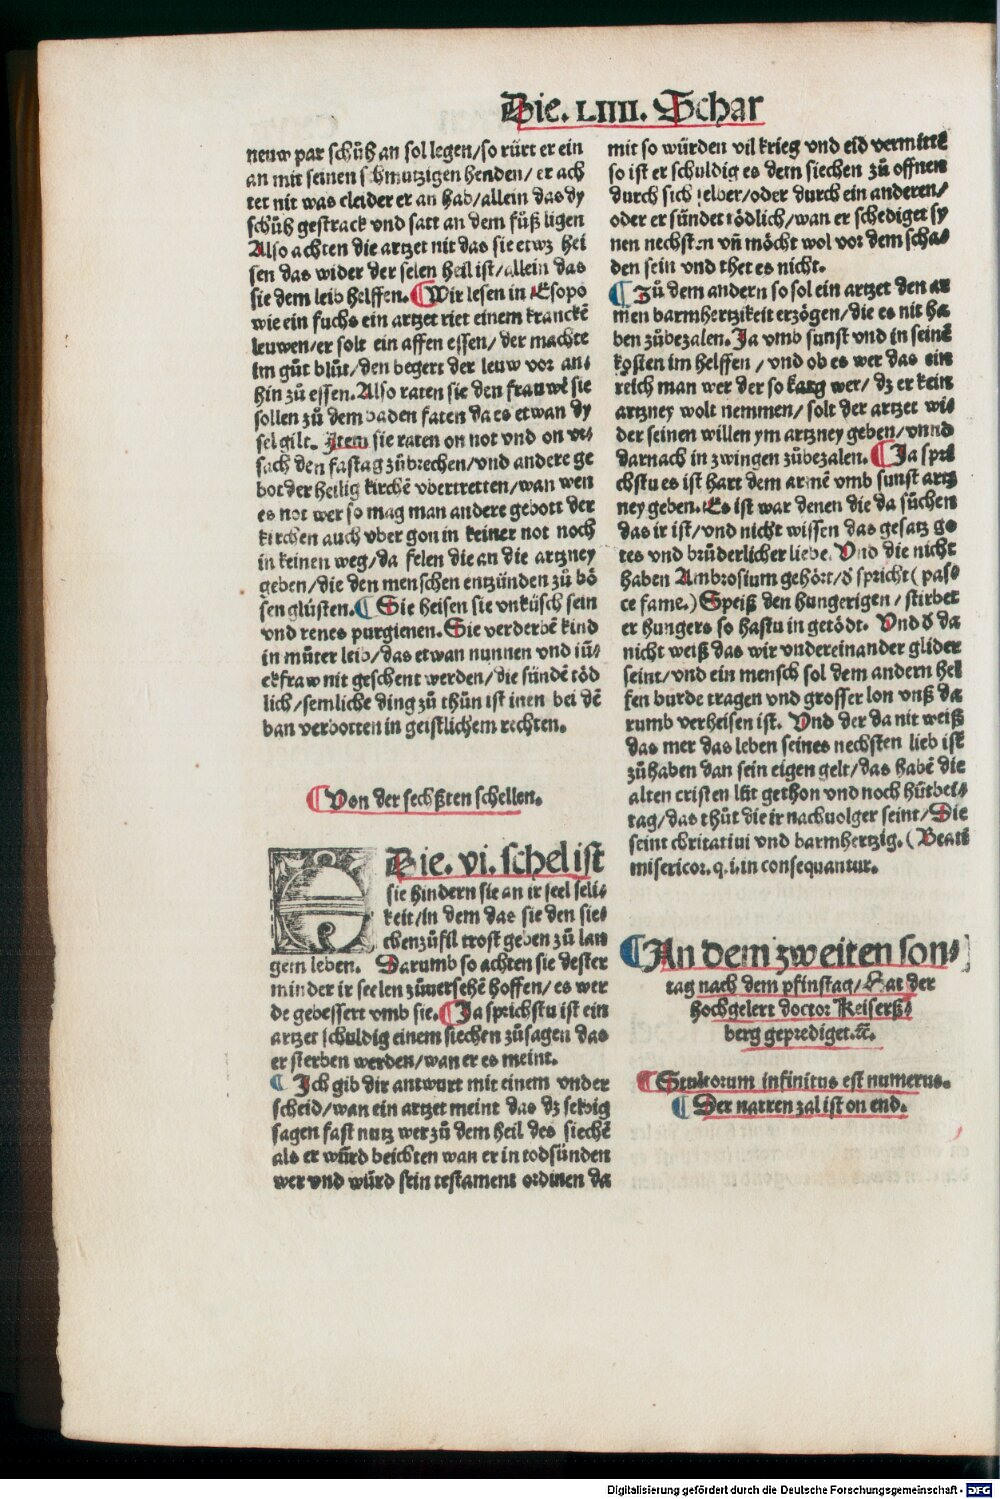 Die. LIIII. Schar
neuw par schůh an sol legen/so růrt er ein
an mit seinen schmutzigen henden/ er ach
tet nit was cleider er an hab/allein das dy
schůh gestrack vnd satt an dem fůß ligen
Also achten die artzet nit das sie etwz hei
sen das wider der selen heil ist/allein das
sie dem leib helffen. ¶Wir lesen in Esopo
wie ein fuchs ein artzet riet einem kranckē
leuwen/er solt ein affen essen/ der machte
im gůt blůt/den begert der leuw vor an⸗
hin zů essen. Also raten sie den frauwē sie
sollen zů dem baden faten da es etwan dy
sel gilt. Item sie raten on not vnd on vr⸗
sach den fastag zůbrechen/vnd andere ge
bot der heilig kirchē vbertretten/wan wen
es not wer so mag man andere gebott der
kirchen auch vber gon in keiner not noch
in keinen weg/da felen die an die artzney
geben/die den menschen entzünden zů bö
sen glüsten. ¶ Sie heisen sie vnküsch sein
vnd renes purgieren. Sie verderbē kind
in můter leib/das etwan nunnen vnd iũ⸗
ckfraw nit geschent werden/die sündē töd
lich/semliche ding zů thůn ist inen bei dē
ban verbotten in geistlichem rechten.
¶Von der sechßten schellen.
Die. vi. schel ist
sie hindern sie an ir seel seli⸗
keit/in dem das sie den sie⸗
chen zůfil trost geben zů lan
gem leben. Darumb so achten sie dester
minder ir seelen zůuersehē hoffen/es wer
de gebessert vmb sie. ¶Ja sprichstu ist ein
artzet schuldig einem siechen zůsagen das
er sterben werden/wan er es meint.
¶ Ich gib dir antwurt mit einem vnder
scheid/wan ein artzet meint das dz selbig
sagen fast nutz wer zů dem heil des siechē
als er würd beichten wan er in todsünden
wer vnd würd sein testament ordinen da
mit so würden vil krieg vnd eid vermitte
so ist er schuldig es dem siechen zů offnen
durch sich selber/oder durch ein anderen/
oder er sündet tödlich/wan er schediget sy
nen nechsten vñ möcht wol vor dem scha⸗
den sein vnd thet es nicht.
¶Zů dem andern so sol ein artzet den ar
men barmhertzikeit erzögen/die es nit ha
ben zůbezalen. Ja vmb sunst vnd in seinē
kosten im helffen / vnd ob es wer das ein
reich man wer der so karg wer/ dz er kein
artzney wolt nemmen/ solt der artzet wi⸗
der seinen willen ym artzney geben/vnnd
darnach in zwingen zůbezalen. ¶Ja spri
chstu es ist hart dem armē vmb sunst artz
ney geben. Es ist war denen die da sůchen
das ir ist/vnd nicht wissen das gesatz go
tes vnd brüderlicher liebe. Vnd die nicht
haben Ambrosium gehört/d̄ spricht( pas⸗
ce fame.) Speiß den hungerigen/ stirbet
er hungers so hastu in getödt. Vnd d̄ da
nicht weiß das wir vndereinander glider
seint/vnd ein mensch sol dem andern hel
fen burde tragen vnd grosser lon vnß da
rumb verheisen ist. Vnd der da nit weiß
das mer das leben seines nechsten lieb ist
zůhaben dan sein eigen gelt/das habē die
alten cristen lüt gethon vnd noch hütbei⸗
tag/das thůt die ir nachuolger seint/Die
seint chritatiui vnd barmhertzig. ( Beati
misericor. q. i. in consequantur.
¶An dem zweiten son⸗
tag nach dem pfinstag/ Hat der
hochgelert doctor Keiserß⸗
berg geprediget. ⁊c.
¶Stultorum infinitus est numerus.
¶ Der narren zal ist on end.
Digitalisierung gefördert durch die Deutsche Forschungsgemeinschaft - DFG